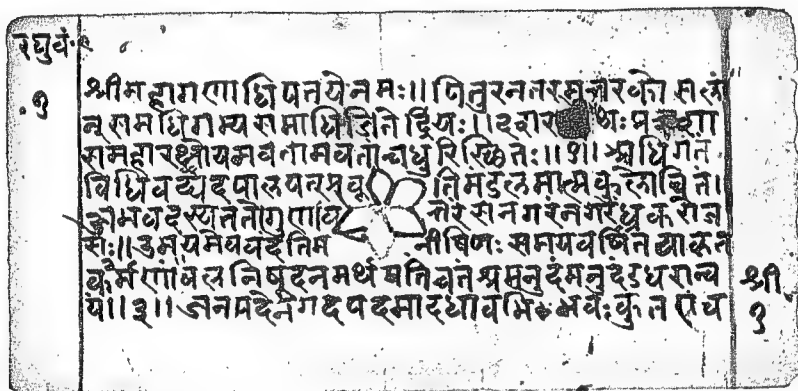 रघुवं॰ ९
श्रीमन्महागणाधिपतयेनमः॥ पितुरनन्तरमुत्तरकोसलां
न्समधिगम्य समाधिजितेंद्रियः॥ दशर थः प्रशशा
समहारथोयमवतामवतान्चधुरिस्थितः॥१॥ अधिगतं
विधिवद्यदपालयत्प्रकृ तिमंडलमात्मकुलोचितं।
अभवदस्यततोगुणव त्तरंसनगरंनगरंध्रकरौज
सः॥ उभयमेववदंतिम नीषिणः समयवर्षितयाकृत
कर्मणांवलनिषूदनमर्थपतिंचतंश्रमनुदंमनुदंडधरान्व
यं॥३॥ जनपदेनगदःपदमादधावभिभवःकुतएव
श्री
१